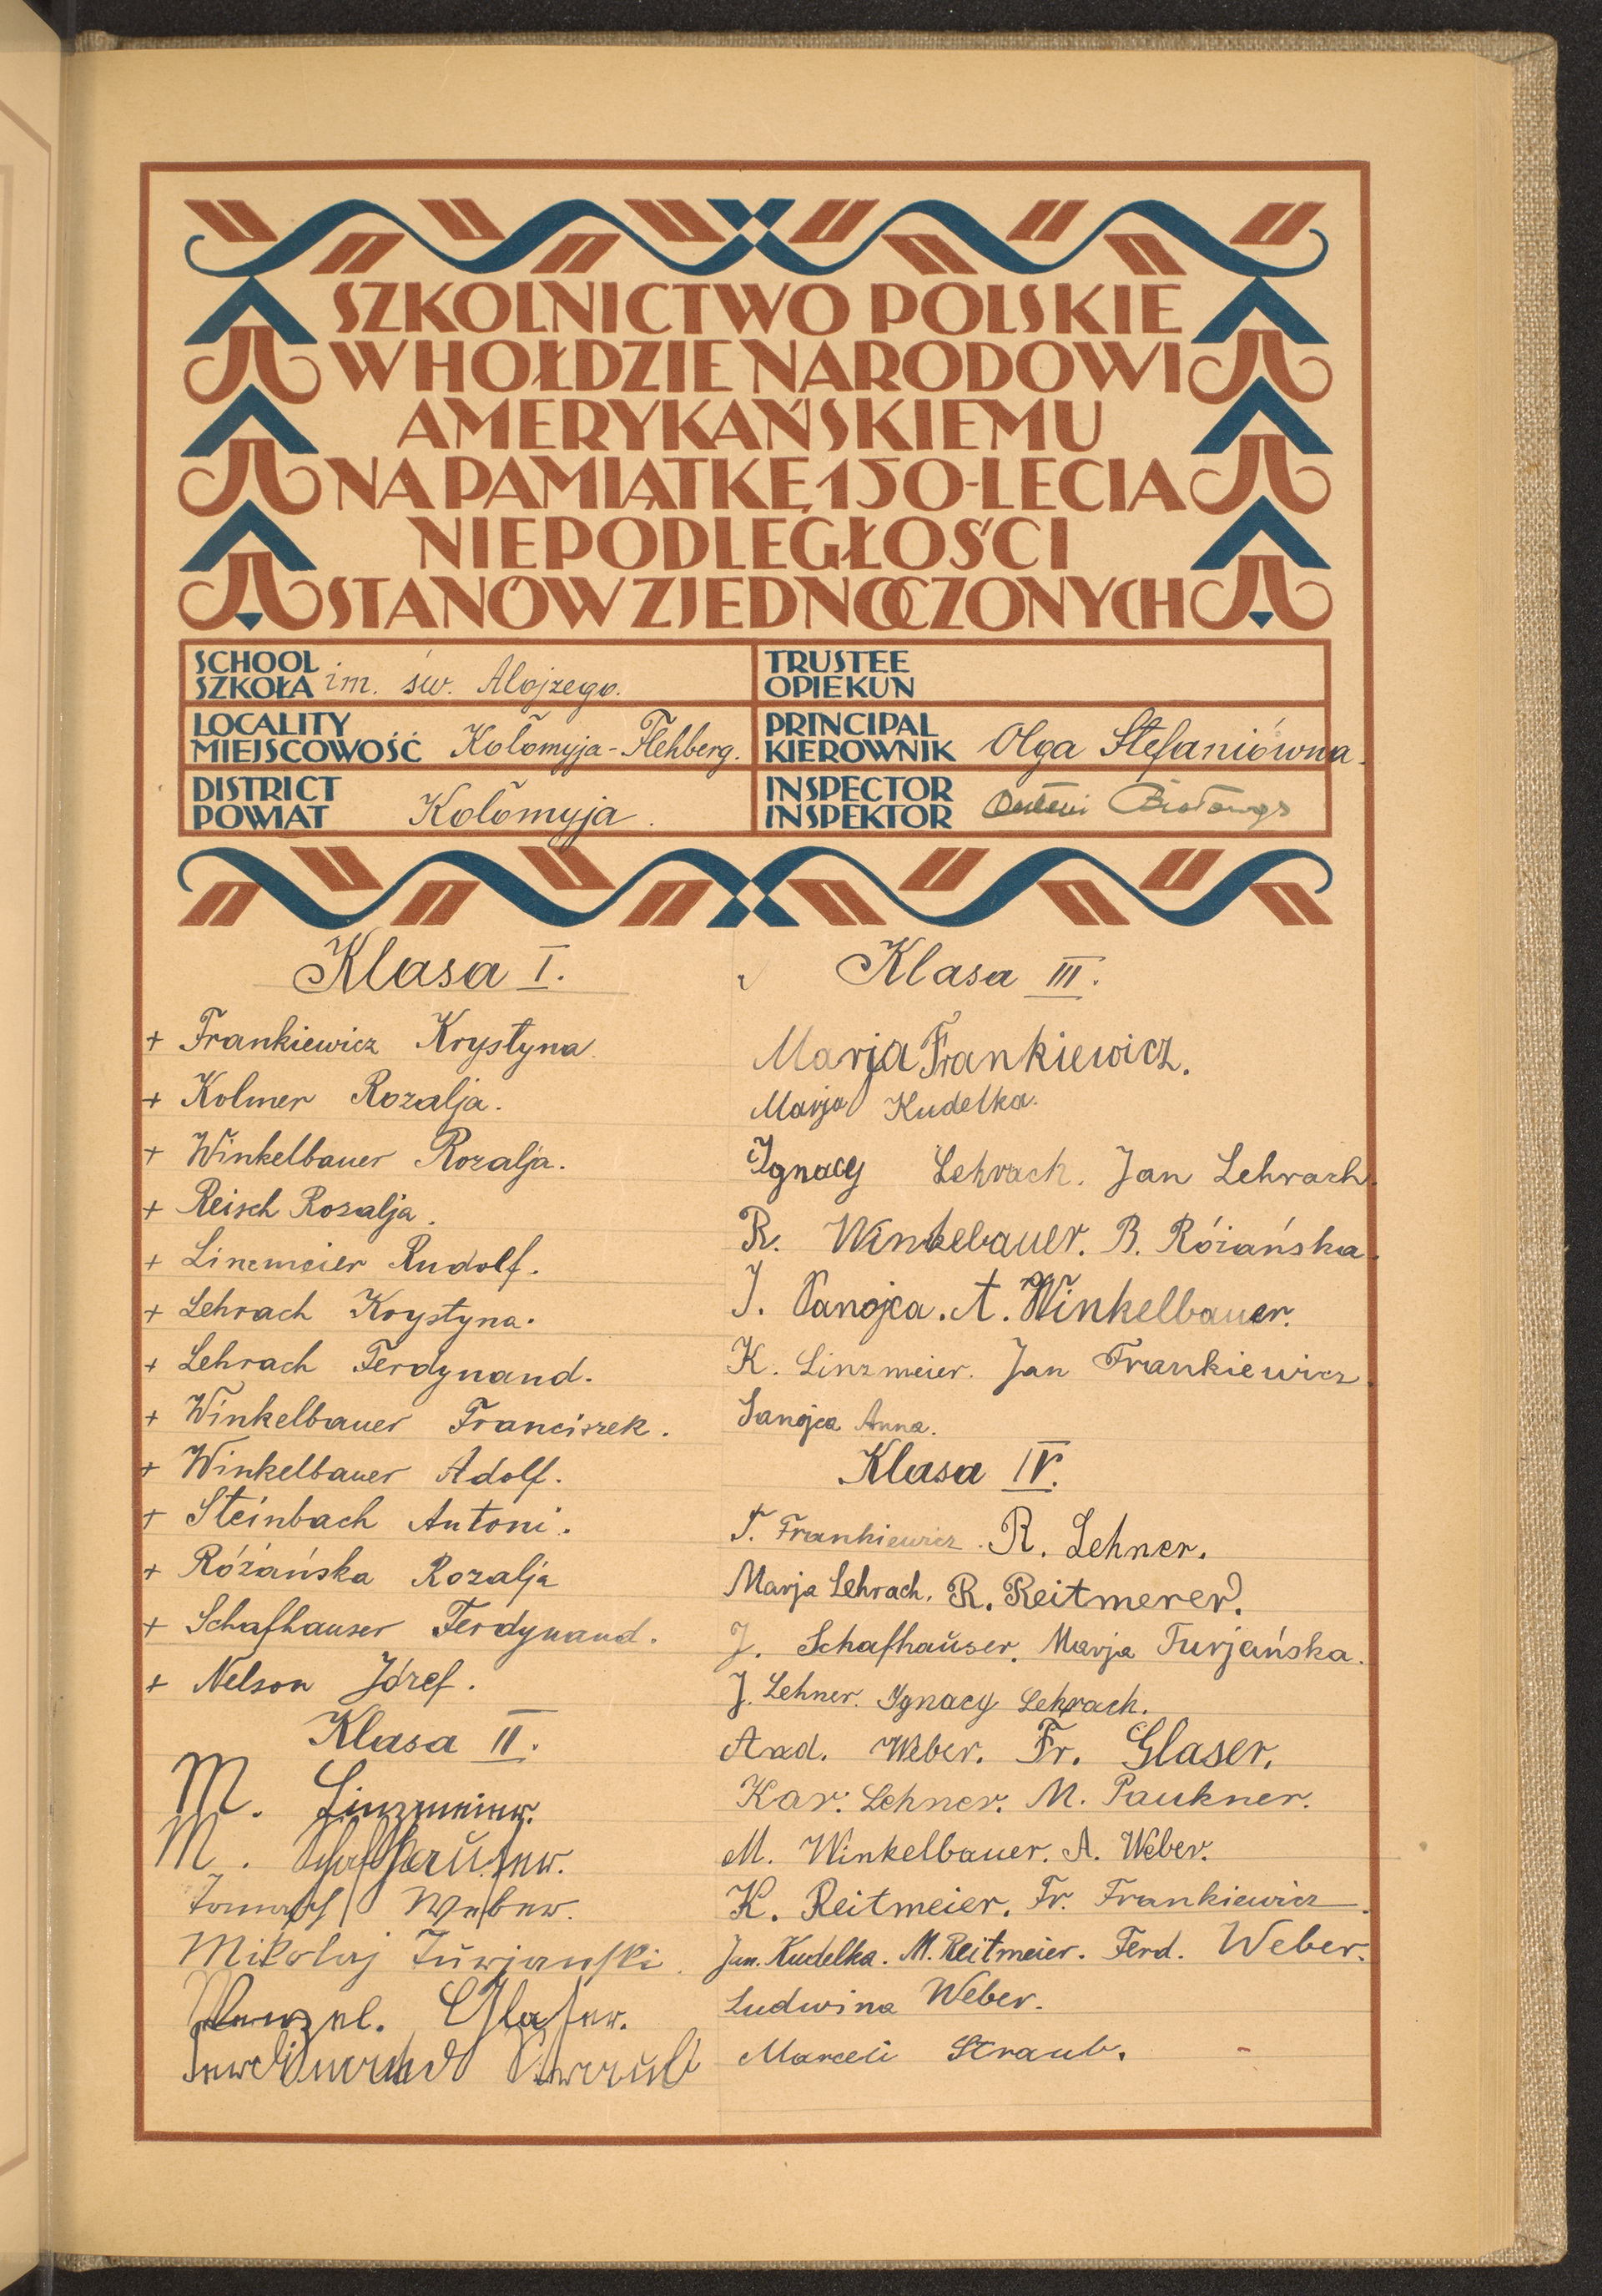 SZKOLNICTWO POLSKIE
W HOŁDZIE NARODOWI
AMERYKAŃSKIEMU
NA PAMIĄTKĘ 150-LECIA
NIEPODLEGŁOŚCI
STANÓW ZJEDNOCZONYCH
SCHOOL
SZKOŁA im. św. Alojzego.
TRUSTEE
OPIEKUN
LOCALITY
MIEJSCOWOŚĆ Kołomyja-Flehberg.
PRINCIPAL
KIEROWNIK Olga Stefaniówna.
DISTRICT
POWIAT Kołomyja.
INSPECTOR
INSPEKTOR
Klasa I.
+ Frankiewicz Krystyna.
+ Kolmer Rozalja.
+ Winkelbauer Rozalja.
+ Reisch Rozalja.
+ Lincmeier Rudolf.
+ Lehrach Krystyna.
+ Lehrach Ferdynand.
+ Winkelbauer Franciszek.
+ Winkelbauer Adolf.
+ Steinbach Antoni.
+ Różańska Rozalja
+ Schafhauser Ferdynand.
+ Nelson Józef.
Klasa II.
M. Linzmeier.
M. Schafhauser.
Tomasz Weber.
Mikolaj Turjanski.
Wenzel. Glaser.
Ferdinand Straub
Klasa III.
Marja Frankiewicz.
Marja Kudelka.
Ignacy Lehrach. Jan Lehrach.
R. Winkebauer. B. Różańska.
J. Sanojca. A. Winkelbauer.
K. Linzmeier. Jan Frankiewicz.
Sanojca Anna.
Klasa IV.
T. Frankiewicz. R. Lehner.
Marja Lehrach. R. Reitmerer.
J. Schafhaŭser. Marja Turjańska.
J. Lehner. Ignacy Lehrach.
And. Weber. Fr. Glaser.
Kar. Lehner. M. Paukner.
M. Winkelbauer. A. Weber.
K. Reitmeier. Fr. Frankiewicz.
Jan. Kudelka. M. Reitmeier. Ferd. Weber.
Ludwina Weber.
Marceli Straub.